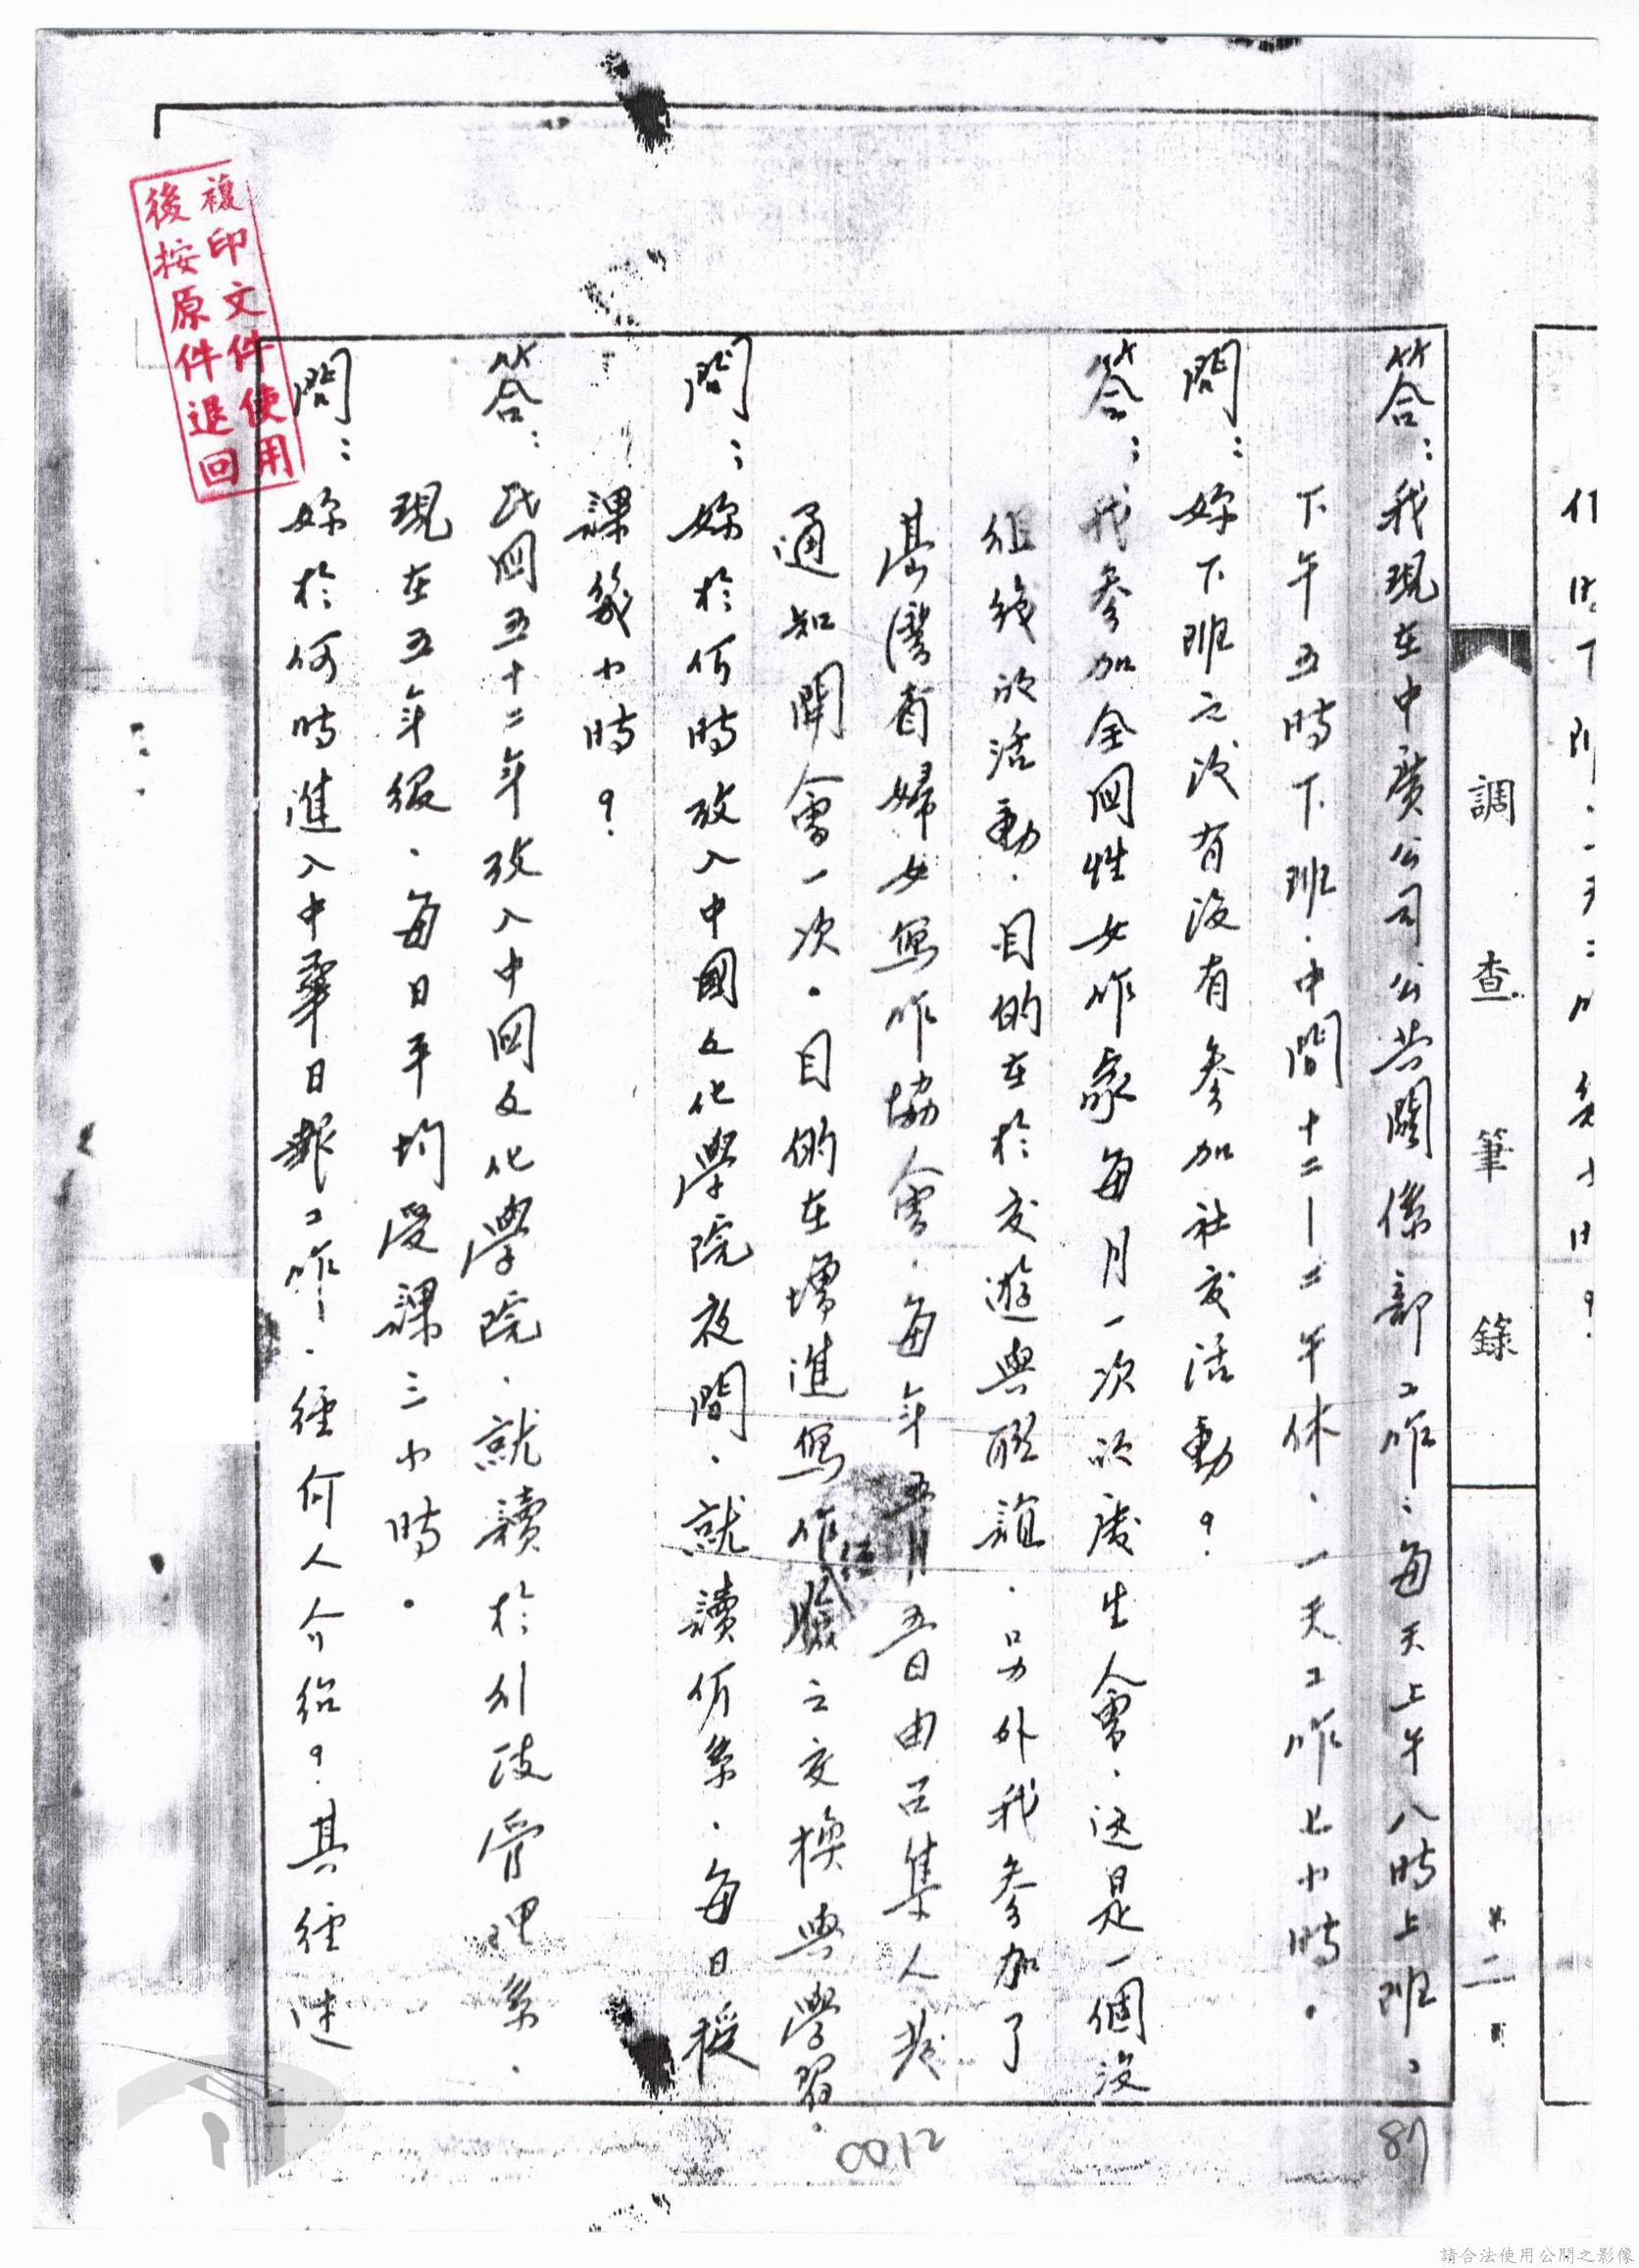 調查筆錄
第二頁
答：我現在中廣公司公共關係部工作：每天上午八時上班、
下午五時下班．中間十二—二午休、一天工作七小時。
問：妳下班之次有沒有參加社交活動？
答：我參加全国性女作家每月一次的慶生會、這是一個沒
組織的活動．目的在於交遊與聯誼．另外我參加了
台灣省婦女寫作協會．每年五月五日由召集人發
通知開會一次。目的在增進寫作經驗之交換與學習。
問：妳於何時攷入中國文化學院夜間、就讀何系．每日授
課幾小時？
答：民国五十二年攷入中国文化學院．就讀於行政管理系．
現在五年級．每日平均受課三小時。
問：妳於何時進入中華日報工作．經何人介紹？其經述
複印文件使用
後按原件退回
0012
87
請合法使用公開之影像